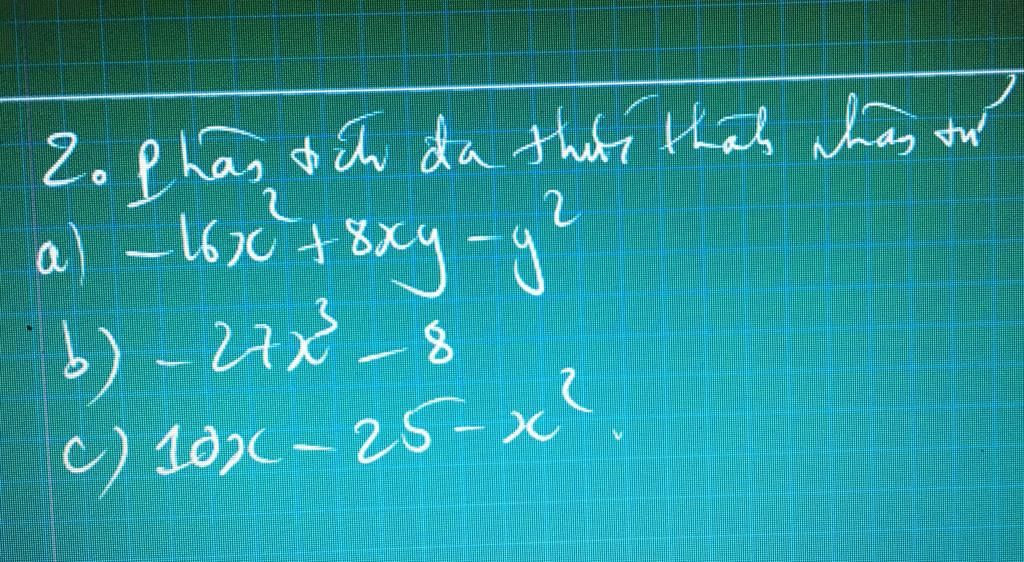 2. Phân tích đa thức thành nhân tử
a) -16x² + 8xy - y²
b) - 27x³ - 8
c) 10x - 25 - x².